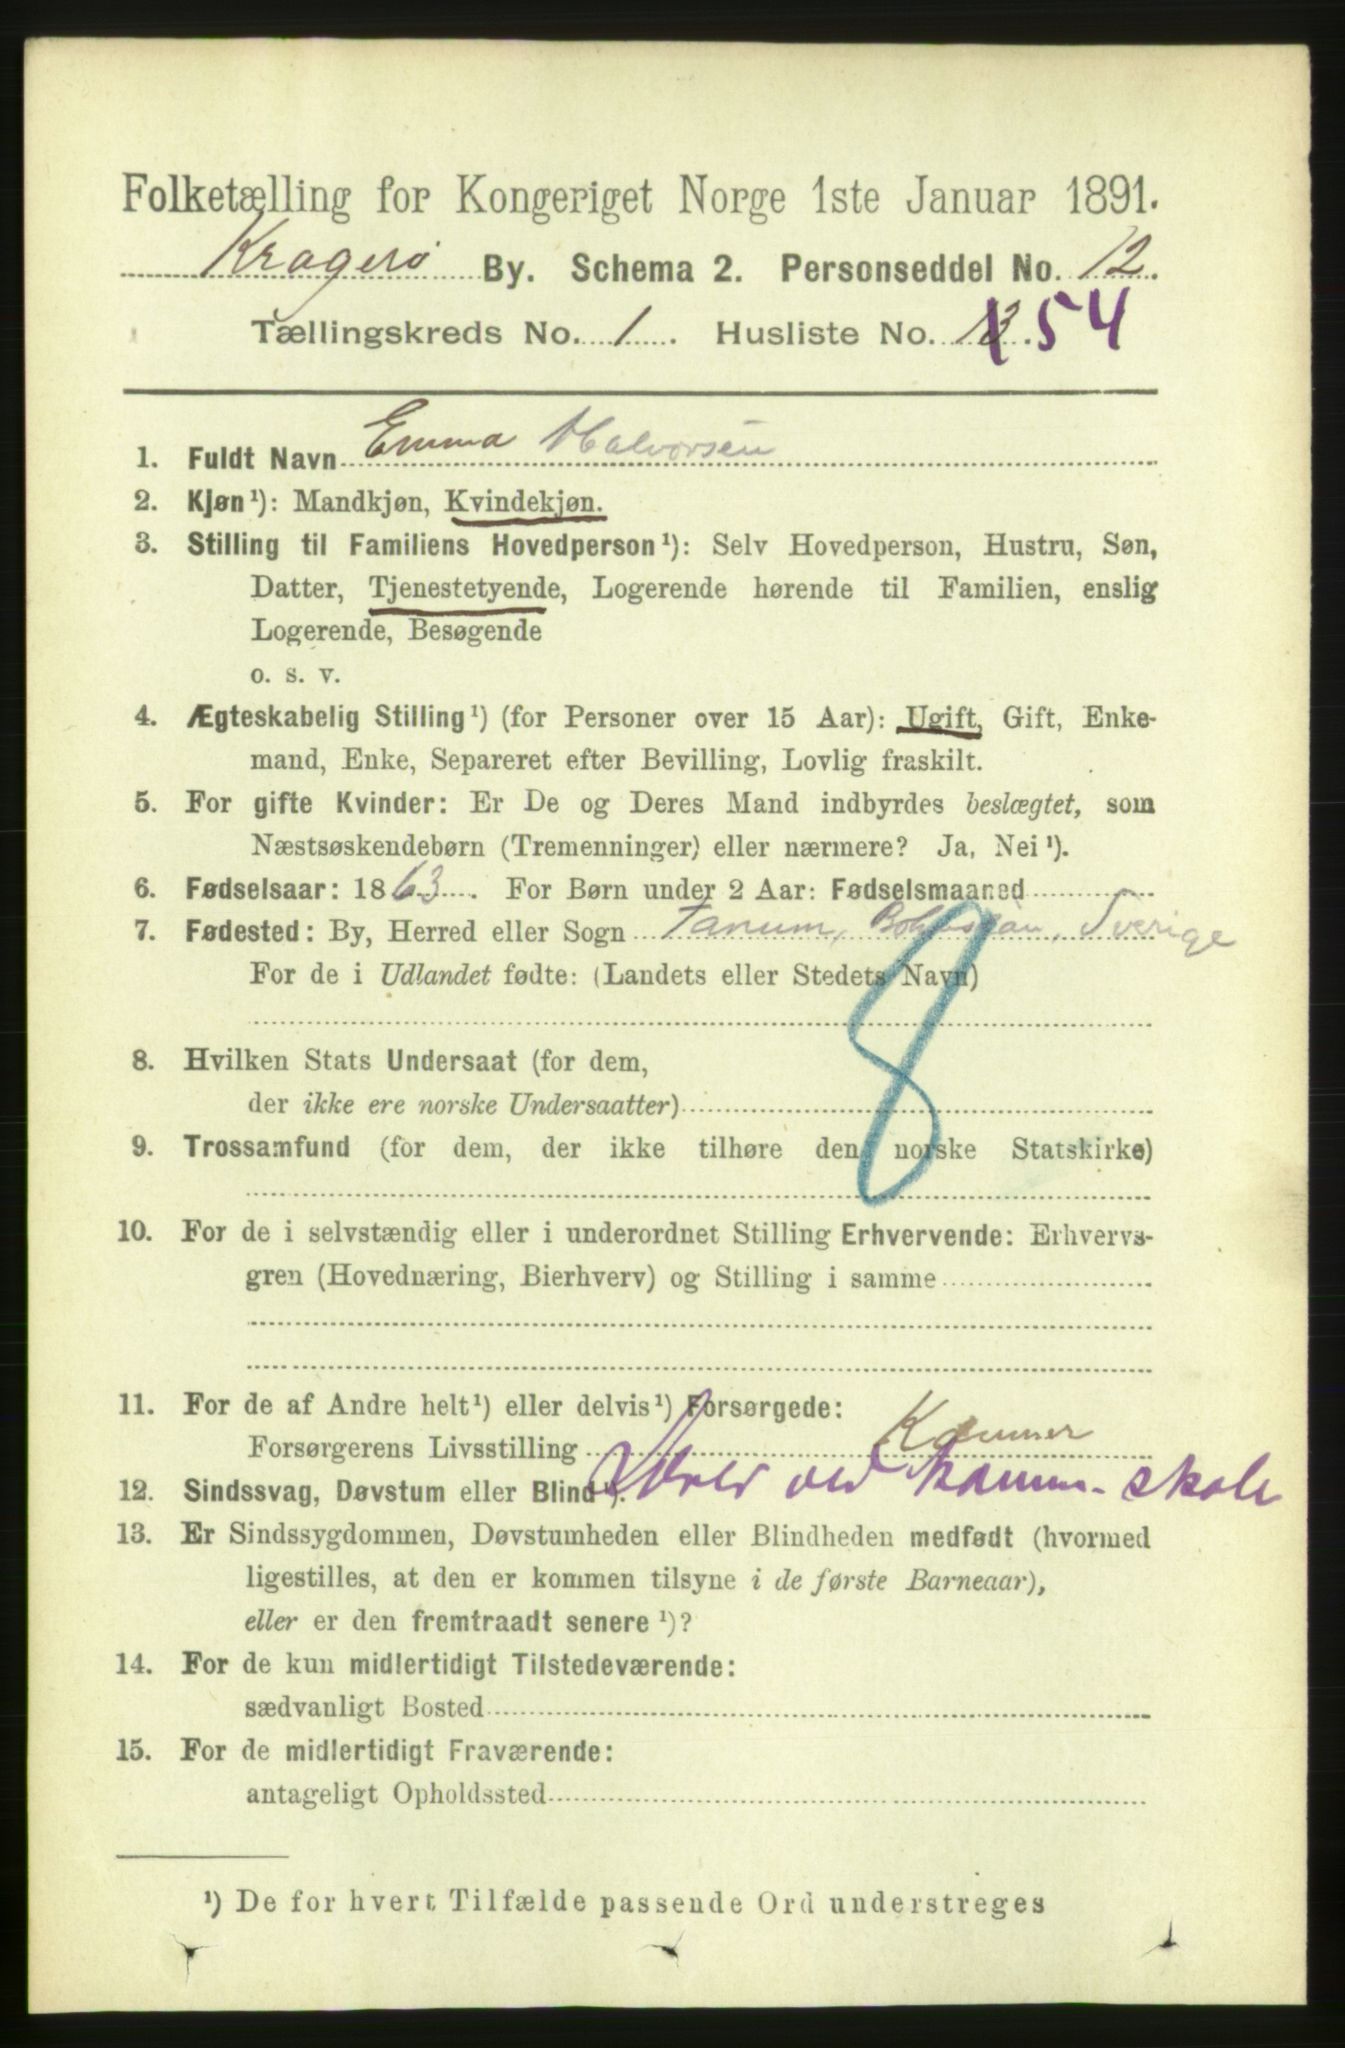 Folketælling for Kongeriget Norge 1ste Januar 1891.
Kragerø By. Schema 2. Personseddel No. 12.
Tællingskreds No. 1. Husliste No. 13. 54
1. Fuldt Navn Emma Halvorsen
2. Kjøn¹): Mandkjøn, Kvindekjøn.
3. Stilling til Familiens Hovedperson¹): Selv Hovedperson, Hustru, Søn,
Datter, Tjenestetyende, Logerende hørende til Familien, enslig
Logerende, Besøgende
o. s. v.
4. Ægteskabelig Stilling¹) (for Personer over 15 Aar): Ugift, Gift, Enke-
mand, Enke, Separeret efter Bevilling, Lovlig fraskilt.
5. For gifte Kvinder: Er De og Deres Mand indbyrdes beslægtet, som
Næstsøskendebørn (Tremenninger) eller nærmere? Ja, Nei¹).
6. Fødselsaar: 1863. For Børn under 2 Aar: Fødselsmaaned
7. Fødested: By, Herred eller Sogn Tanum, Sverige
For de i Udlandet fødte: (Landets eller Stedets Navn)
8
8. Hvilken Stats Undersaat (for dem,
der ikke ere norske Undersaatter)
9. Trossamfund (for dem, der ikke tilhøre den norske Statskirke)
10. For de i selvstændig eller i underordnet Stilling Erhvervende: Erhvervs-
gren (Hovednæring, Bierhverv) og Stilling i samme
11. For de af Andre helt¹) eller delvis¹) Forsørgede:
Forsørgerens Livsstilling
12. Sindssvag, Døvstum eller Blind¹). ved komm. skole
13. Er Sindssygdommen, Døvstumheden eller Blindheden medfødt (hvormed
ligestilles, at den er kommen tilsyne i de første Barneaar),
eller er den fremtraadt senere¹)?
14. For de kun midlertidigt Tilstedeværende:
sædvanligt Bosted
15. For de midlertidigt Fraværende:
antageligt Opholdssted
¹) De for hvert Tilfælde passende Ord understreges